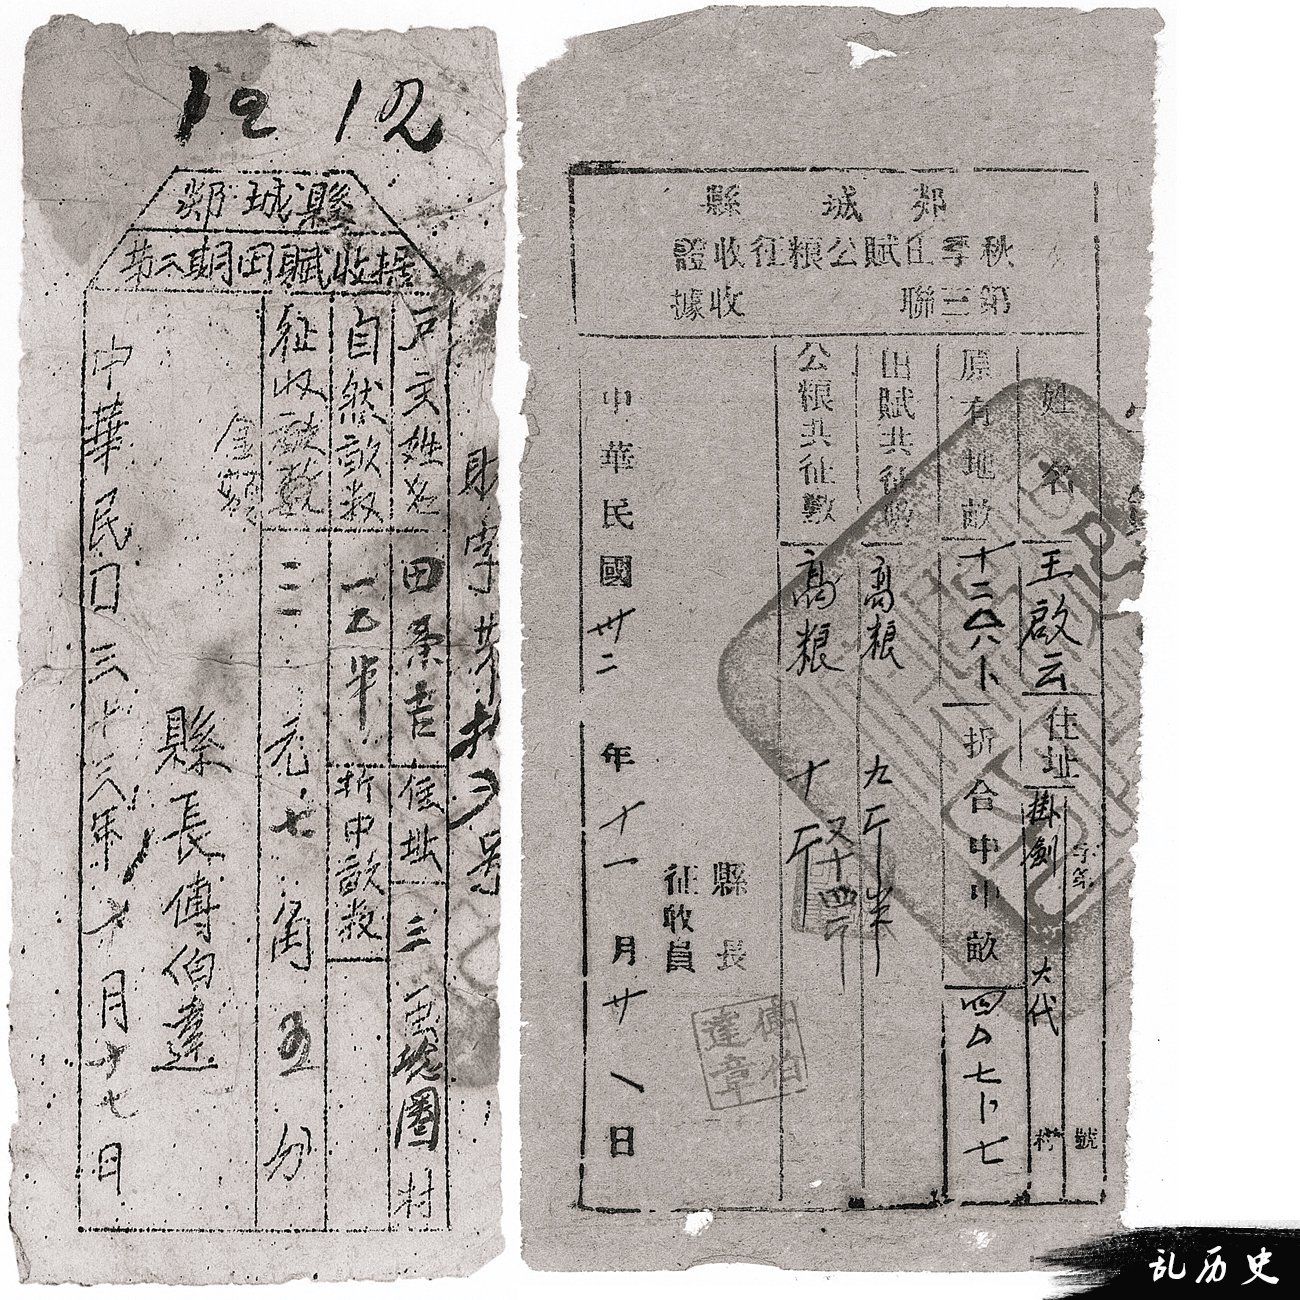 12 12
郯城縣
第二期田賦收据
戶主姓名
田
吉
住址
三
圈村
自然畝数
一
半
折中畝数
征收畝数
金額
三元七角五分
縣長傅伯達
中華民囗三十三年
月十七日
財字第
号
郯城縣
秋季田賦公粮征收證
第三聯 收據
姓名
王啟云
住址
掛劍
大代
村
字第
號
原有地畝
折合中中畝
田賦共征數
高粮
九斤半
公粮共征數
高粮
十斤
又十四斤
縣長
征收員
傅伯達章
中華民國卅二年十一月廿八日
乱历史